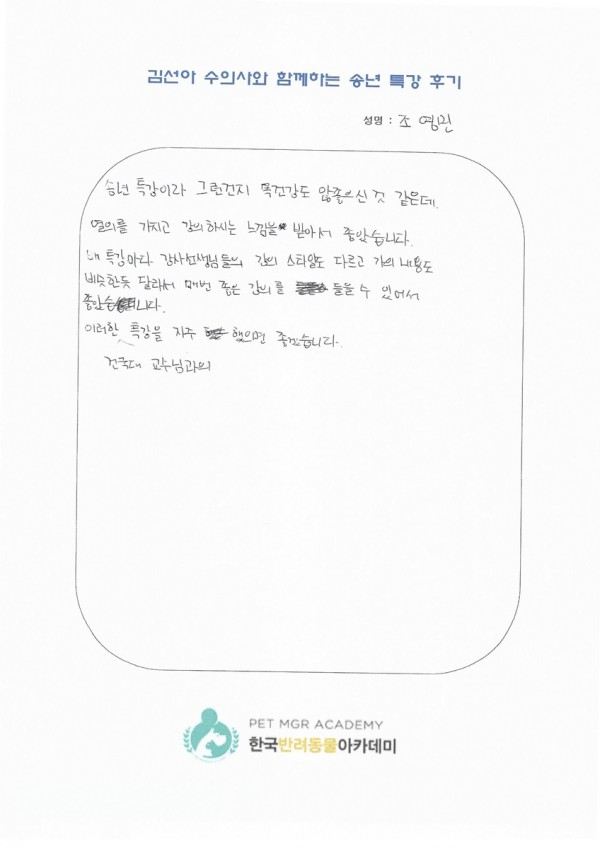 김선아 수의사와 함께하는 송년 특강 후기
성명 : 조 영진
송년 특강이라 그런건지 목건강도 않좋으신 것 같은데,
열의를 가지고 강의하시는 느낌을 받아서 좋았습니다.
매 특강마다 강사선생님들의 강의 스타일도 다르고 강의 내용도
비슷한듯 달라서 매번 좋은 강의를 들을 수 있어서
좋았습니다.
이러한 특강을 자주 했으면 좋겠습니다.
건국대 교수님과의
PET MGR ACADEMY
한국반려동물아카데미